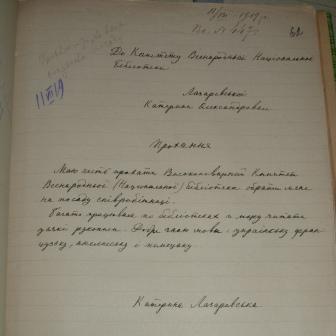 11/VII 1919 р.
Вх. N
До Комітету Всенародньої Національної
Бібліотеки
11 VII 19
Лазаревської
Катерини Олександровни
Прохання
Маю честь прохати Високоповажний Комітет
Всенародньої (Національної) Бібліотеки обрати мене
на посаду співробітниці.
Багато працювала по бібліотеках и можу читати
рукописи. Добре знаю мови: українську, фран
цузьку, англійську и німецьку.
Катерина Лазаревська